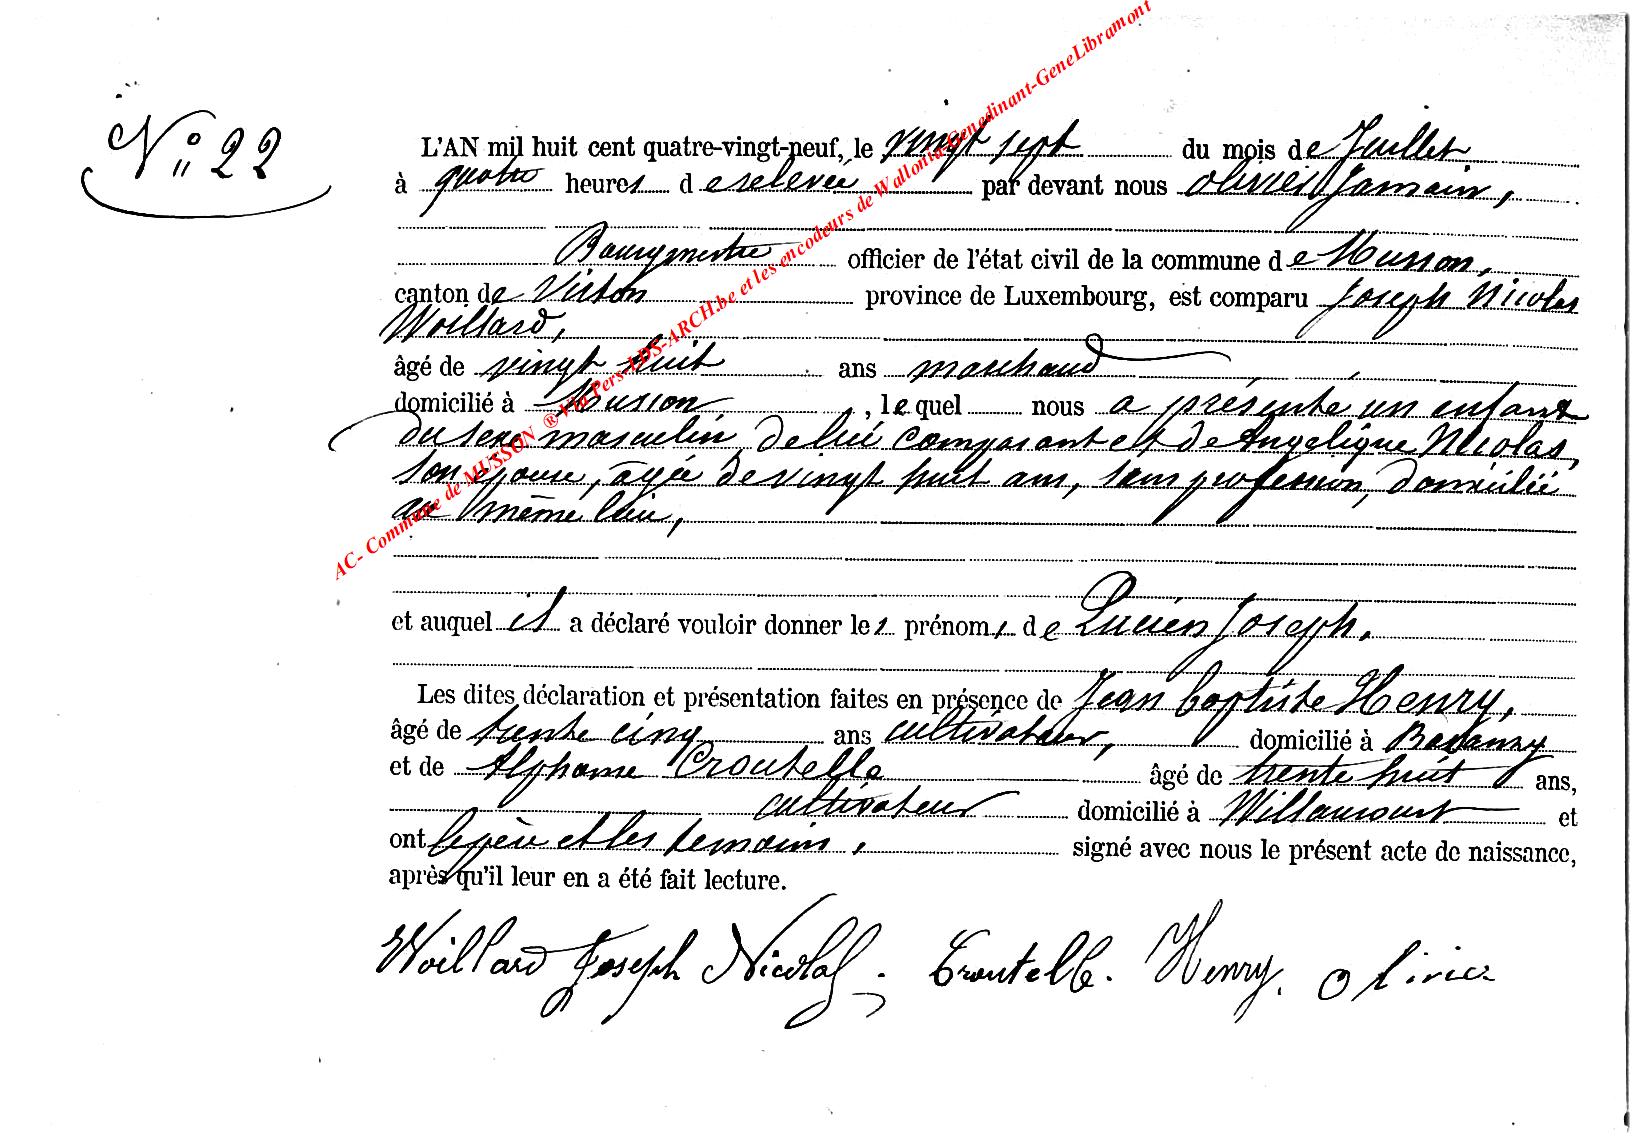 N° 22
L'AN mil huit cent quatre-vingt-neuf, le vingt sept du mois de Juillet
à quatre heures de relevée par devant nous Olivier Jamain,
Bourgmestre officier de l'état civil de la commune de Musson,
canton de Virton province de Luxembourg, est comparu Joseph Nicolas
Woillard,
âgé de vingt huit ans marchand
domicilié à Musson, lequel nous a présenté un enfant
du sexe masculin, de lui comparant et de Angelique Nicolas,
son épouse, agée de vingt huit ans, sans profession, domiciliée
au même lieu,
et auquel il a déclaré vouloir donner les prénoms de Lucien Joseph.
Les dites déclaration et présentation faites en présence de Jean baptiste Henry,
âgé de trente cinq ans cultivateur, domicilié à Baranzy
et de Alphonse Croutelle âgé de trente huit ans,
cultivateur domicilié à Willancourt et
ont le père et les temoins, signé avec nous le présent acte de naissance,
après qu'il leur en a été fait lecture.
Woillard Joseph Nicolas. Croutelle. Henry. Olivier
AC- Commune de MUSSON ® Via Pers-LDS-ARCH.be et les encodeurs de Wallonia-Genedinant-GeneLibramont